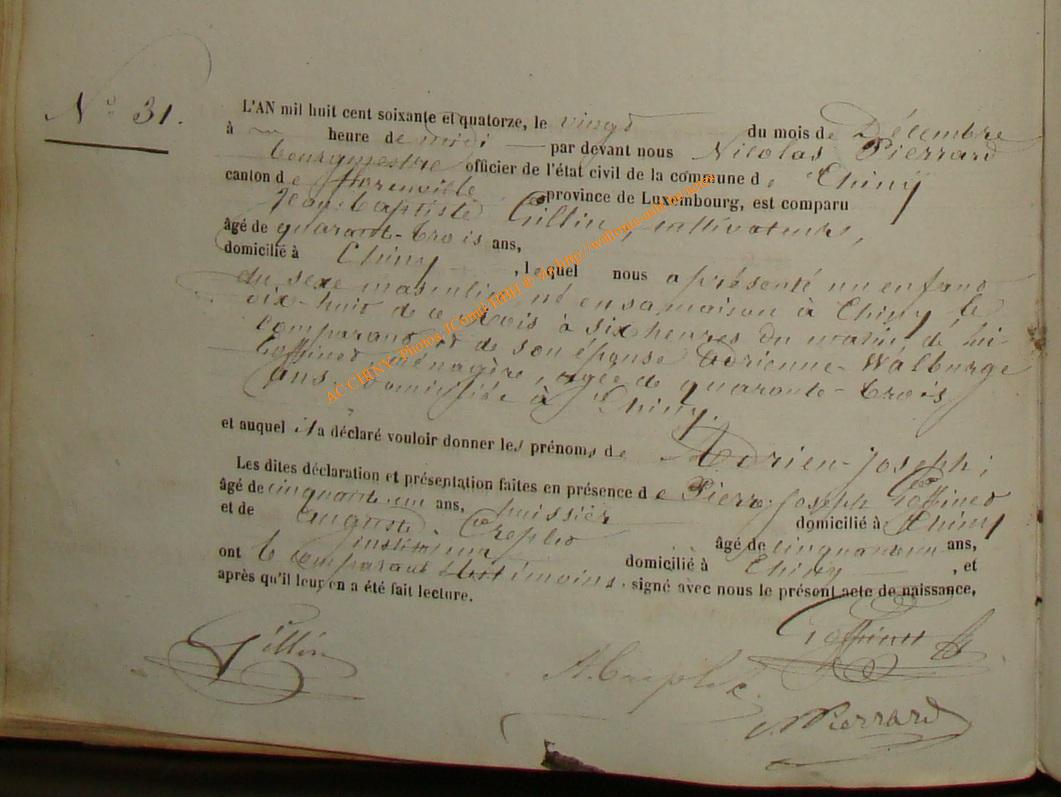 N° 31.
L'AN mil huit cent soixante et quatorze, le vingt du mois de Décembre
à heure de midi par devant nous Nicolas Pierrard
bourgmestre officier de l'état civil de la commune de Chiny
canton de florenville province de Luxembourg, est comparu
Jean-baptiste Gillin, cultivateur,
âgé de quarante-trois ans,
domicilié à Chiny, lequel nous a présenté un enfant
du sexe masculin né en sa maison à Chiny le
dix-huit de ce mois à six heures du matin, de lui
comparant et de son épouse Adrienne-Walburge
Goffinet, ménagère, agée de quarante-trois
ans, domiciliée à Chiny.
et auquel il a déclaré vouloir donner les prénoms de Adrien-Joseph;
Les dites déclaration et présentation faites en présence de Pierre-Joseph Goffinet
âgé de cinquante un ans, huissier domicilié à Chiny
et de Auguste Créplet âgé de cinquante un ans,
instituteur domicilié à Chiny, et
ont le comparant et les témoins, signé avec nous le présent acte de naissance,
après qu'il leur en a été fait lecture.
Gillin
Goffinet
A. Creplet
N Pierrard
AC CHINY - Photos JComté HBH @ via http://wallonia-asbl-over.com